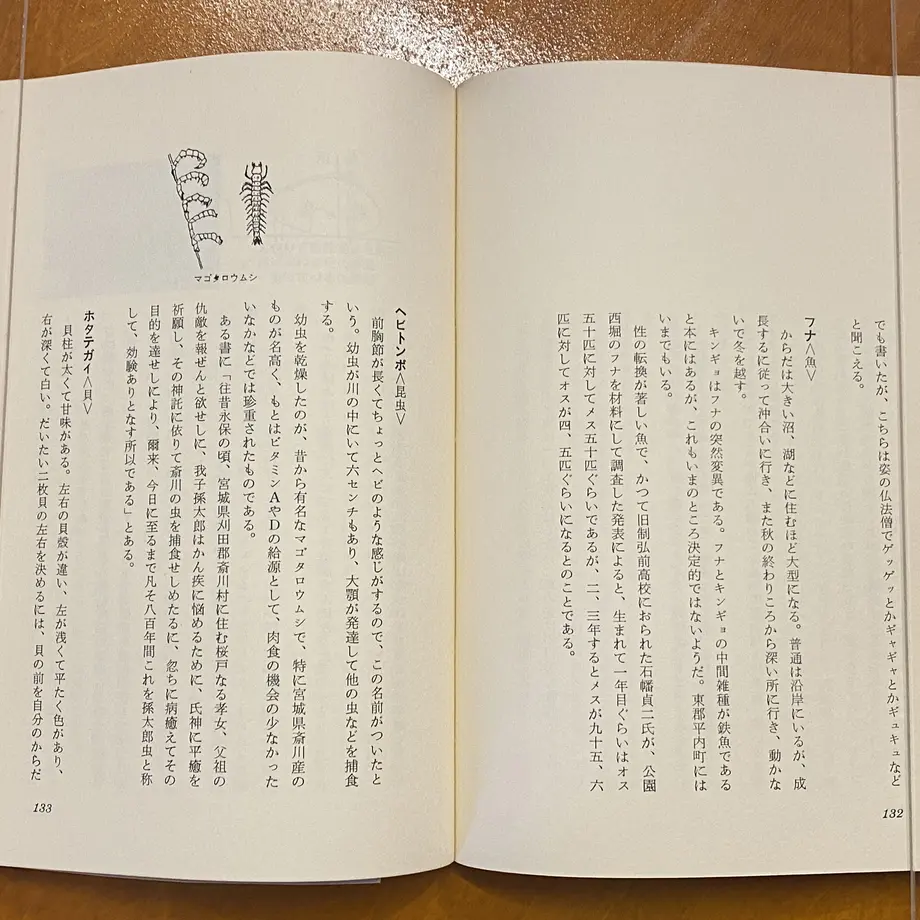 でも書いたが、こちらは姿の仏法僧でゲッゲッとかギャギャとかギュキュなど
と聞こえる。
フナ<魚>
からだは大きい沼、湖などに住むほど大型になる。普通は沿岸にいるが、成
長するに従って沖合いに行き、また秋の終わりころから深い所に行き、動かな
いで冬を越す。
キンギョはフナの突然変異である。フナとキンギョの中間雑種が鉄魚である
と本にはあるが、これもいまのところ決定的ではないようだ。東郡平内町には
いまでもいる。
性の転換が著しい魚で、かつて旧制弘前高校におられた石幡貞二氏が、公園
西堀のフナを材料にして調査した発表によると、生まれて一年目ぐらいはオス
五十匹に対してメス五十匹ぐらいであるが、二、三年するとメスが九十五、六
匹に対してオスが四、五匹ぐらいになるとのことである。
132
マゴタロウムシ
ヘビトンボ<昆虫>
前胸節が長くてちょっとヘビのような感じがするので、この名前がついたと
いう。幼虫が川の中にいて六センチもあり、大顎が発達して他の虫などを捕食
する。
幼虫を乾燥したのが、昔から有名なマゴタロウムシで、特に宮城県斎川産の
ものが名高く、もとはビタミンAやDの給源として、肉食の機会の少なかった
いなかなどでは珍重されたものである。
ある書に「往昔永保の頃、宮城県刈田郡斎川村に住む桜戸なる孝女、父祖の
仇敵を報ぜんと欲せしに、我子孫太郎はかん疾に悩めるために、氏神に平癒を
祈願し、その神託に依りて斎川の虫を捕食せしめたるに、忽ちに病癒えてその
目的を達せしにより、爾来、今日に至るまで凡そ八百年間これを孫太郎虫と称
して、効験ありとなす所以である」とある。
ホタテガイ<貝>
貝柱が太くて甘味がある。左右の貝殻が違い、左が浅くて平たく色があり、
右が深くて白い。だいたい二枚貝の左右を決めるには、貝の前を自分のからだ
133